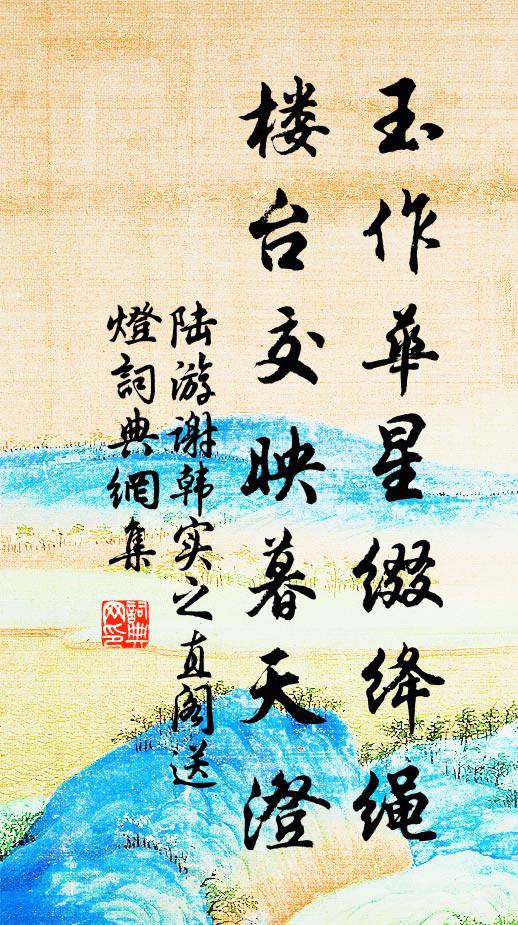 玉作华星缀绛绳
楼台交映暮天澄
陆游谢韩实之直阁送
燈詞典網集
詞典网印